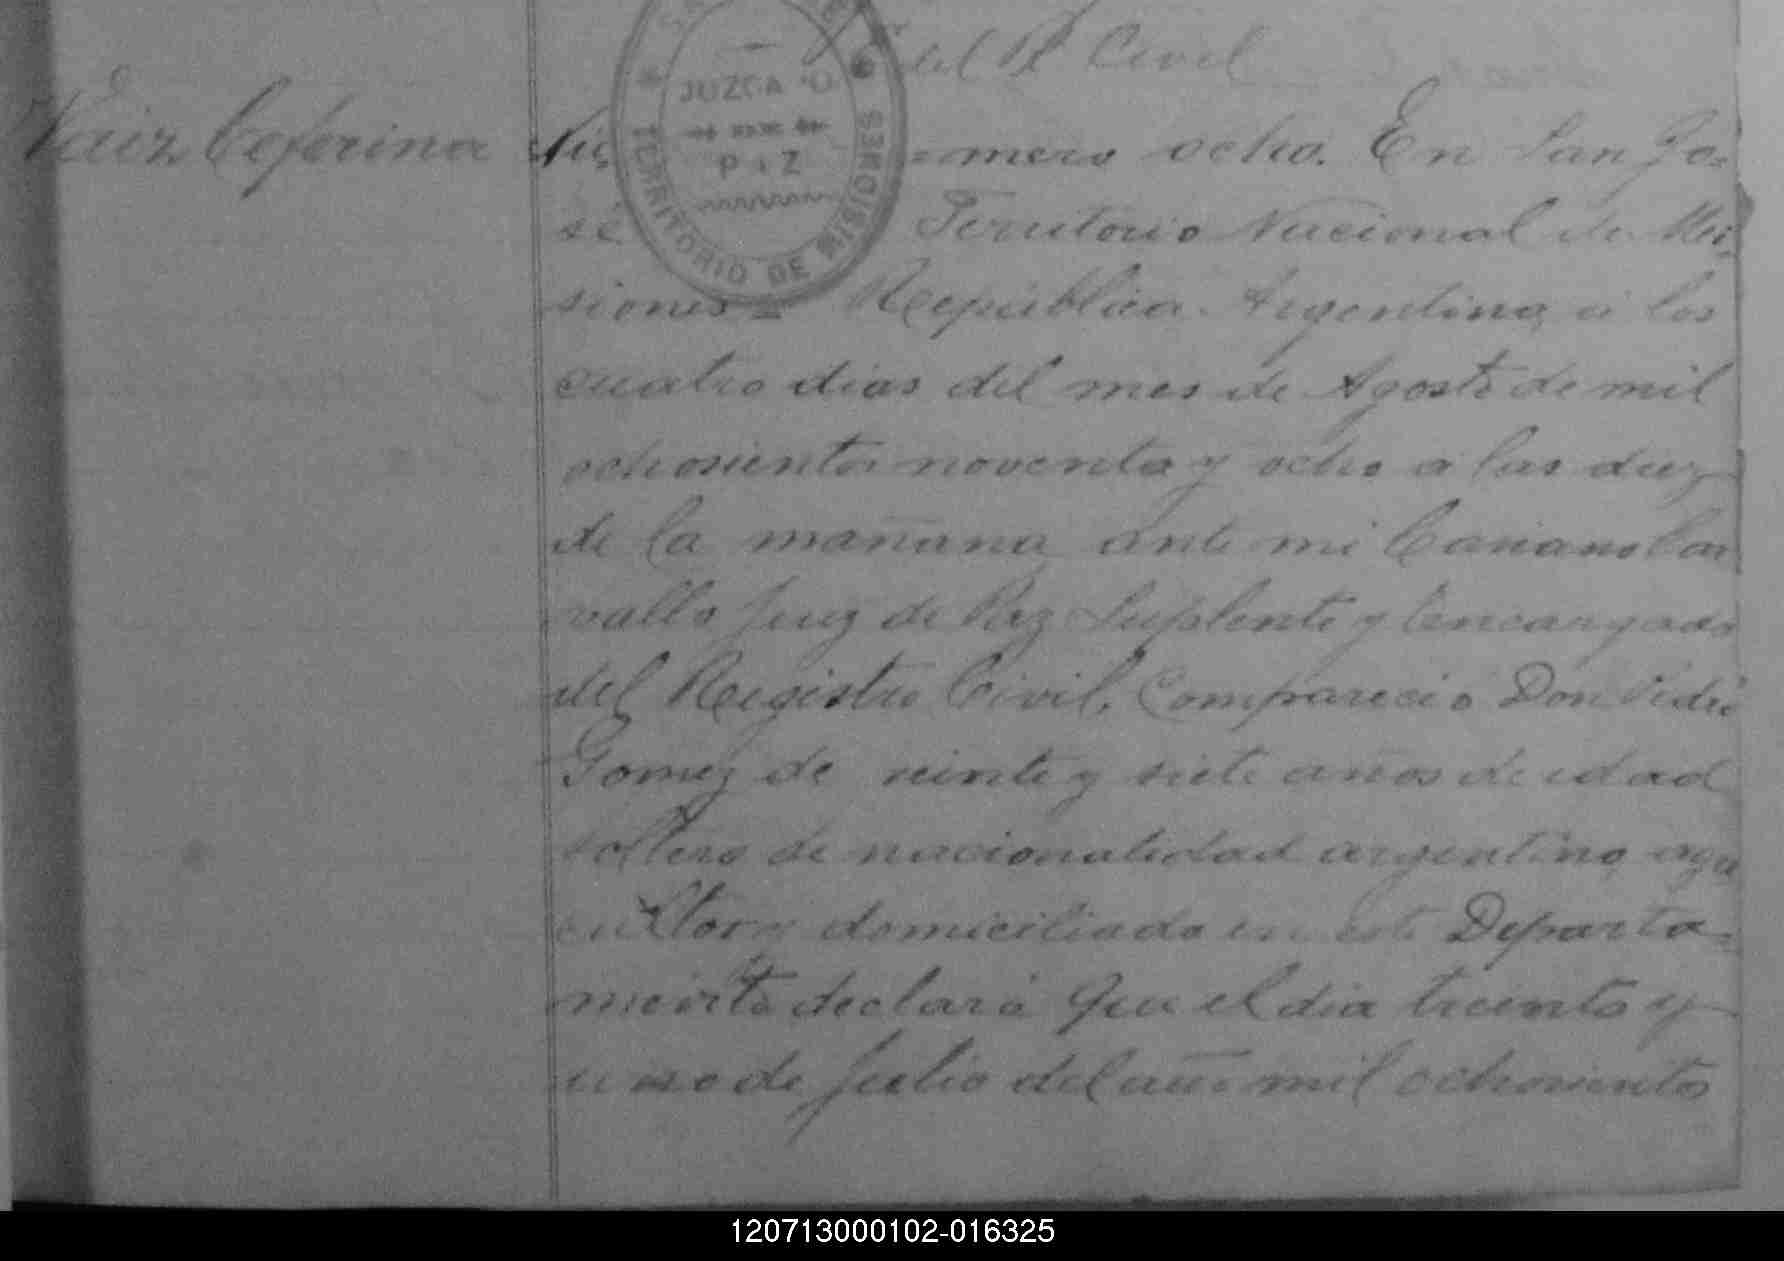 del R. Civil
Ceferina
JUZGADO
PAZ
TERRITORIO DE MISIONES
Nú=mero ocho. En San Jo=
sé Territorio Nacional de Mi=
siones = República Argentina, á los
cuatro dias del mes de Agosto de mil
ochosientos noventa y ocho a las diez
de la mañana ante mi Car
vallo Juez de Paz Suplente y Encargado
del Registro Civil, Comparecio Don
Gomez de veinte y siete años de edad
soltero de nacionalidad argentino, agri
cultor y domiciliado en este Departa=
mento declaró Que el dia treinta y
uno de Julio del año mil ochosientos
120713000102-016325